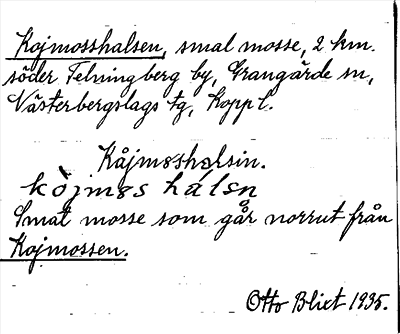 Kojmosshalsen, smal mosse, 2 km.
söder Felningberg by, Grangärde sn,
Västerbergslags tg, Kopp l.
Kåjmosshalsin.
kòjmos hálsn
Smal mosse som går norrut från
Kojmossen.
Otto Blixt 1935.